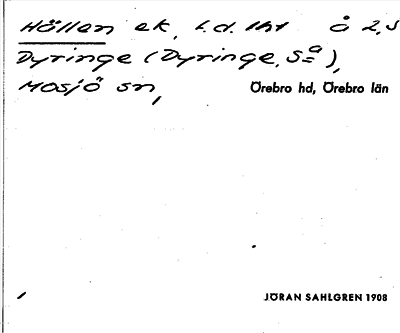 Hällen ek, t.d. lht å 2,5
Dyringe (Dyringe, Så),
Mosjö sn, Örebro hd, Örebro län
JÖRAN SAHLGREN 1908